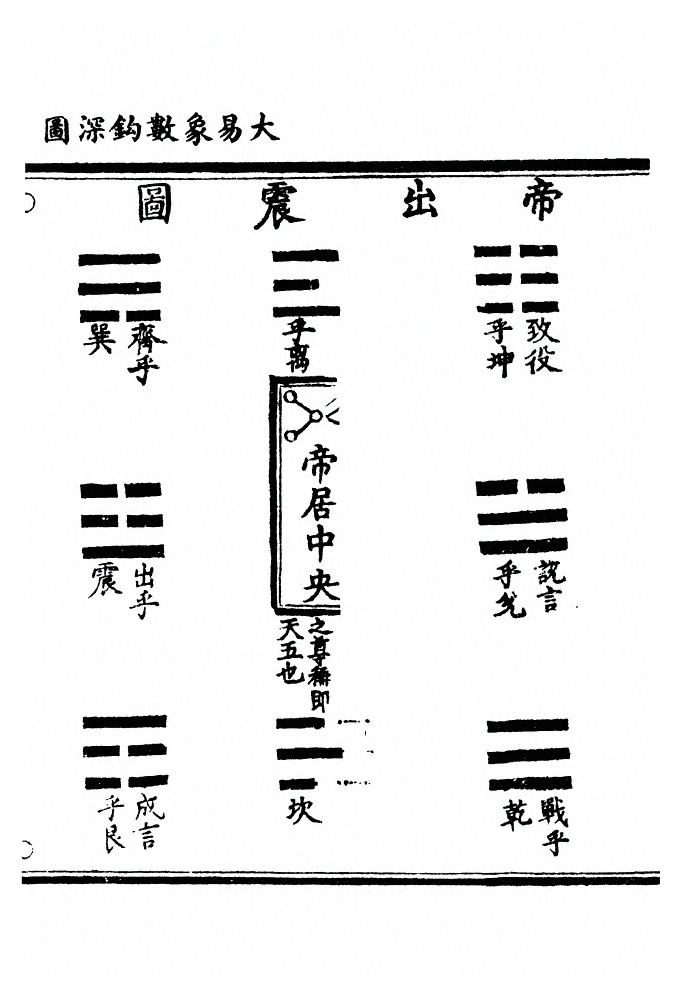 大易象數鈎深圖
帝出震圖
致役
乎坤
乎离
齊乎
巽
說言
乎兊
帝居中央
之尊稱即
天五也
出乎
震
戰乎
乾
坎
成言
乎艮